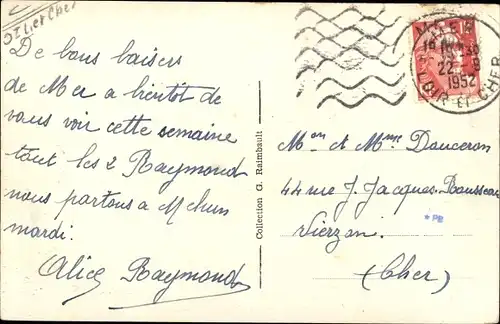 De bons baisers
de Mer a bientôt de
vous voir cette semaine
tout les 2 Raymond
nous partons a Mehun
mardi.
Alice Raymond
Collection G. Raimbault
22 - 9
1952
LOIR-ET-CHER
Mon et Mme Douceron
44 rue J. Jacques Rousseau
Vierzon
(Cher)